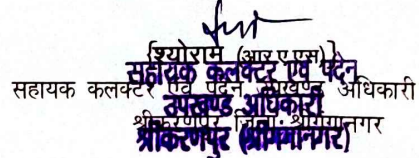 {श्योराम (आर ए एस)}
सहायक कलक्टर एवं पदेन
सहायक कलक्टर एवं पदेन उपखण्ड अधिकारी
उपखण्ड अधिकारी
श्रीकरणपुर जिला श्रीगंगानगर
श्रीकरणपुर (श्रीगंगानगर)